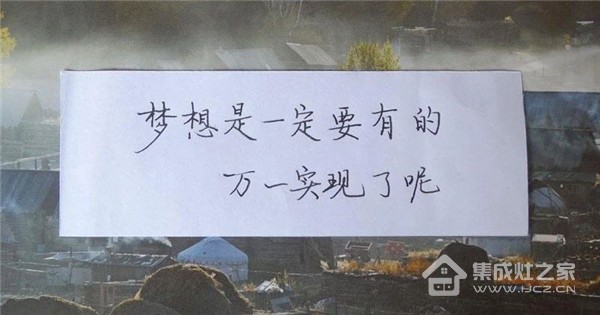 梦想是一定要有的
万一实现了呢
集成灶之家
www.IJCZ.CN